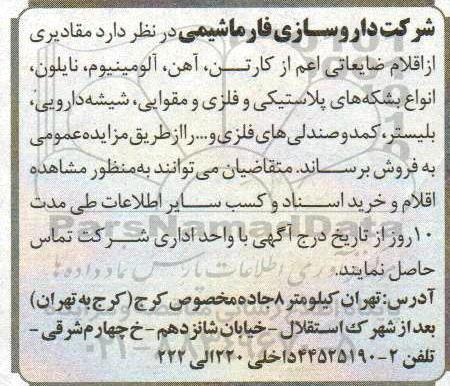 شرکت داروسازی فارماشیمی در نظر دارد مقادیری
ازاقلام ضایعاتی اعم از کارتن، آهن، آلومینیوم، نایلون،
انواع بشکه‌های پلاستیکی و فلزی و مقوایی، شیشه دارویی،
بلیستر، کمد و صندلی های فلزی و... را از طریق مزایده عمومی
به فروش برساند. متقاضیان می توانند به منظور مشاهده
اقلام و خرید اسناد و کسب سایر اطلاعات طی مدت
۱۰ روز از تاریخ درج آگهی با واحد اداری شرکت تماس
حاصل نمایند.
آدرس: تهران کیلومتر ۸ جاده مخصوص کرج (کرج به تهران)
بعد از شهرک استقلال - خیابان شانزدهم - خ چهارم شرقی -
تلفن ۲-۴۴۵۲۵۱۹۰ داخلی ۲۲۰ الی ۲۲۲
ParsNamadData